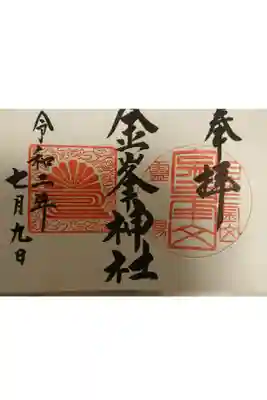 奉拝
金峯神社
令和二年
七月九日